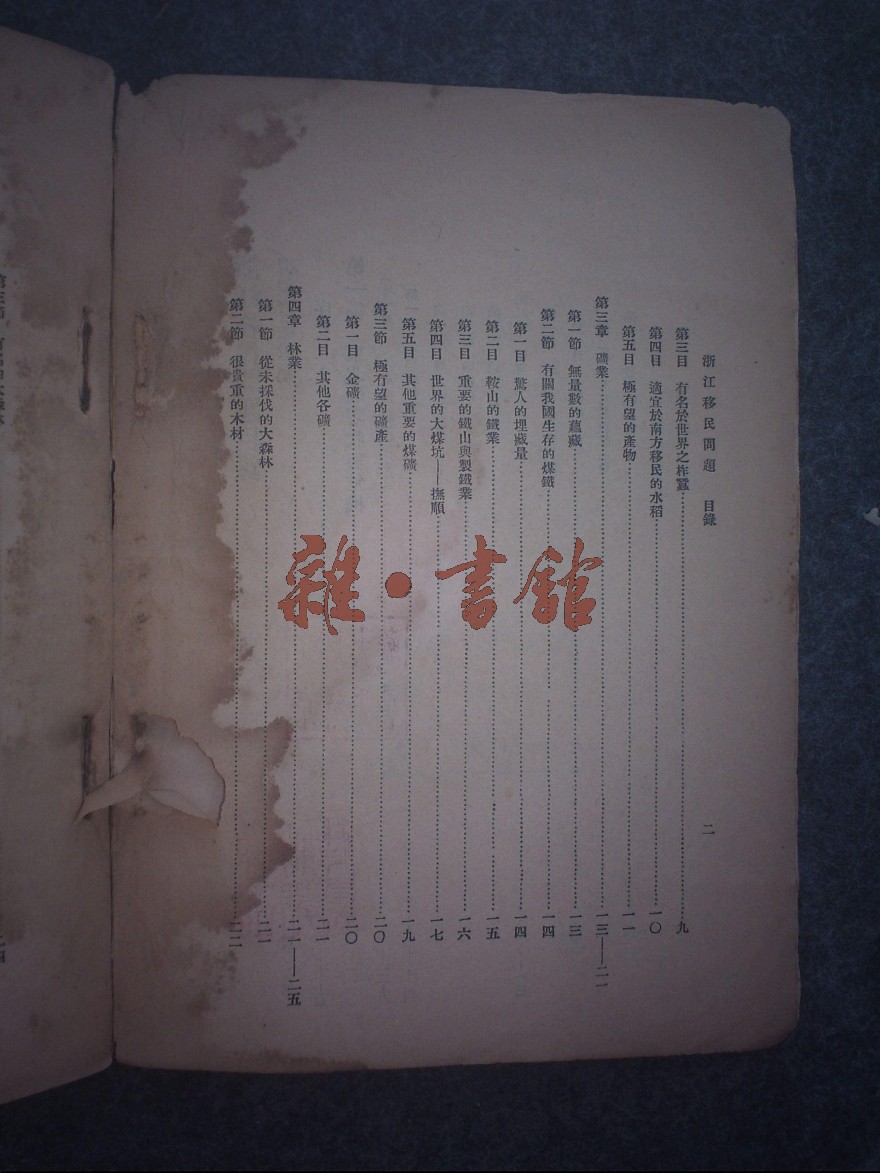 浙江移民問題 目錄 二
第三目 有名於世界之柞蠶……九
第四目 適宜於南方移民的水稻……一〇
第五目 極有望的產物……一一
第三章 礦業……一三——二一
第一節 無量數的蘊藏……一三
第二節 有關我國生存的煤鐵……一四
第一目 驚人的埋藏量……一四
第二目 鞍山的鐵業……一五
第三目 重要的鐵山與製鐵業……一六
第四目 世界的大煤坑——撫順……一七
第五目 其他重要的煤礦……一九
第三節 極有望的礦產……二〇
第一目 金礦……二〇
第二目 其他各礦……二一
第四章 林業……二一——二五
第一節 從未採伐的大森林……二一
第二節 很貴重的木材……二二
雜·書館